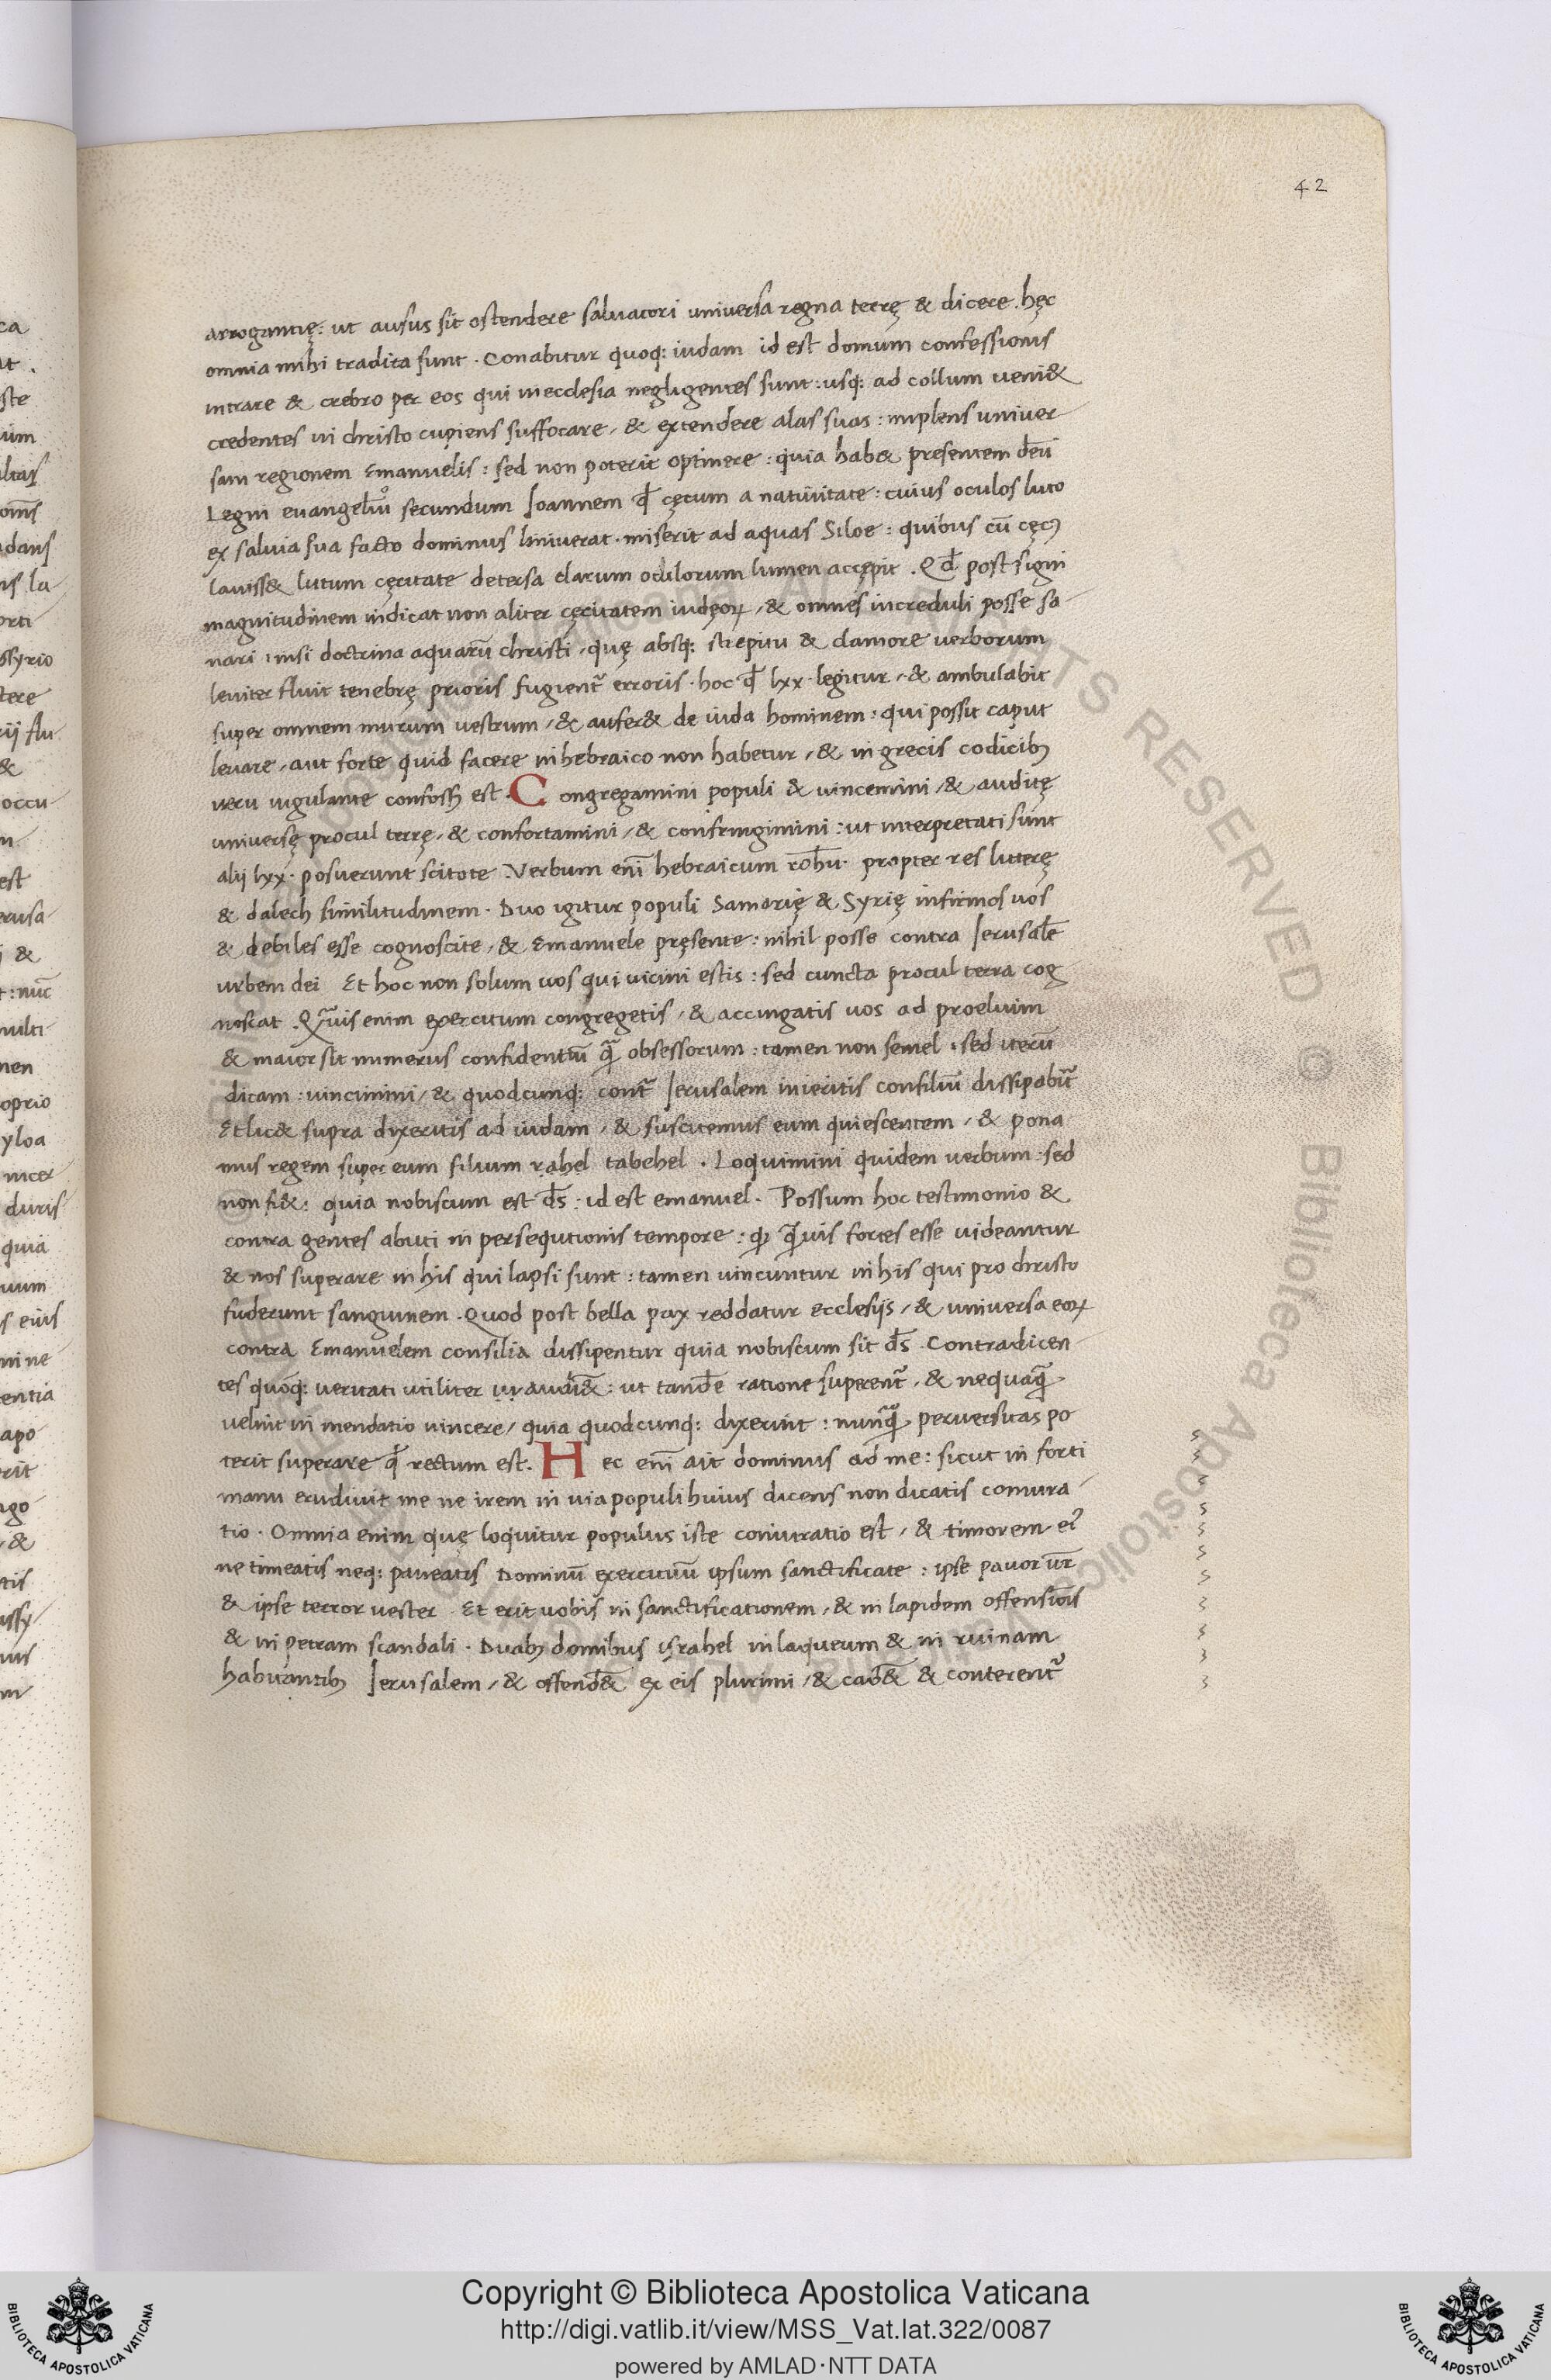 42
arrogantię: ut ausus sit ostendere saluatori universa regna terrę & dicere. hęc
omnia mihi tradita sunt. Conabitur quoq: iudam id est domum confessionis
intrare & crebro per eos qui in ecclesia negligentes sunt: usq: ad collum veni&
credentes in christo cupiens suffocare, & extendere alas suas: implens univer
sam regionem Emanuelis: sed non poterit optinere: quia hab& presentem deū
Legin euangeliū secundum Joannem qđ cęcum a nativitate: cuius oculos luto
ex saluia sua facto dominus liniverat. miserit ad aquas Siloe: quibus cū cęcꝰ
laviss& lutum cęcitate detersa clarum oculorum lumen accępit. Qđ post signi
magnitudinem indicat non aliter cęcitatem iudęoꝝ, & omnes increduli posse sa
nari: nisi doctrina aquarū christi, quę absq: strepitu & clamore verborum
leniter fluit tenebrę prioris fugient᷑ erroris. hoc qđ lxx. legitur, & ambulabit
super omnem murum vestrum, & aufer& de iuda hominem: qui possit caput
levare, aut forte quid facere in hebraico non habetur, & in grecis codicibꝫ
veru iugulante confossꝫ est. Congregamini populi & vincemini, & auditę
universę procul terrę, & confortamini, & confringimini: ut interpretati sunt
alij lxx. posuerunt scitote. Verbum enī hebraicum rohu. propter res litterę
& dalech similitudinem. Duo igitur populi Samarię & Syrię infirmos vos
& debiles esse cognoscite, & Emanuele pręsente: nihil posse contra Jerusalē
urbem dei Et hoc non solum vos qui vicini estis: sed cuncta procul terra cog
noscat. Qāvis enim exercitum congregetis, & accingatis vos ad proelium
& maior sit numerus confidentiū qā obsessorum: tamen non semel. sed iterū
dicam: vincimini, & quodcunq: cont᷑ Jerusalem inieritis consiliū dissipabit᷑
Et lic& supra dixeritis ad iudam, & suscitemus eum quiescentem, & pona
mus regem super eum filium rahel tabehel. Loquimini quidem verbum: sed
non fi&: quia nobiscum est dś: id est emanuel. Possum hoc testimonio &
contra gentes abuti in persequtionis tempore: ꝙ qāvis fortes esse videantur
& nos superare in his qui lapsi sunt: tamen vincuntur in his qui pro christo
fuderunt sanguinem. Quod post bella pax reddatur ecclesijs, & universa eoꝝ
contra Emanuelem consilia dissipentur quia nobiscum sit dś. Contradicen
tes quoq: veritati utiliter audi&: ut tandē ratione superent᷑, & nequaqā
velint in mendatio vincere, quia quodcunq: dixerint: nunqā perversitas po
terit superare qđ rectum est. Hec enī ait dominus ad me: sicut in forti
manu erudivit me ne irem in via populi huius dicens non dicatis coniura
tio. Omnia enim quę loquitur populus iste coniuratio est, & timorem eiꝰ
ne timeatis neq: paveatis Dominū exercituū ipsum sanctificate: ipse pavor vr̄
& ipse terror vester. Et erit vobis in sanctificationem, & in lapidem offensiōis
& in petram scandali. Duabꝫ domibus israhel in laqueum & in ruinam
habitantibꝫ Jerusalem, & offend& ex eis plurimi, & cad& & conterent᷑
Copyright © Biblioteca Apostolica Vaticana
http://digi.vatlib.it/view/MSS_Vat.lat.322/0087
powered by AMLAD·NTT DATA